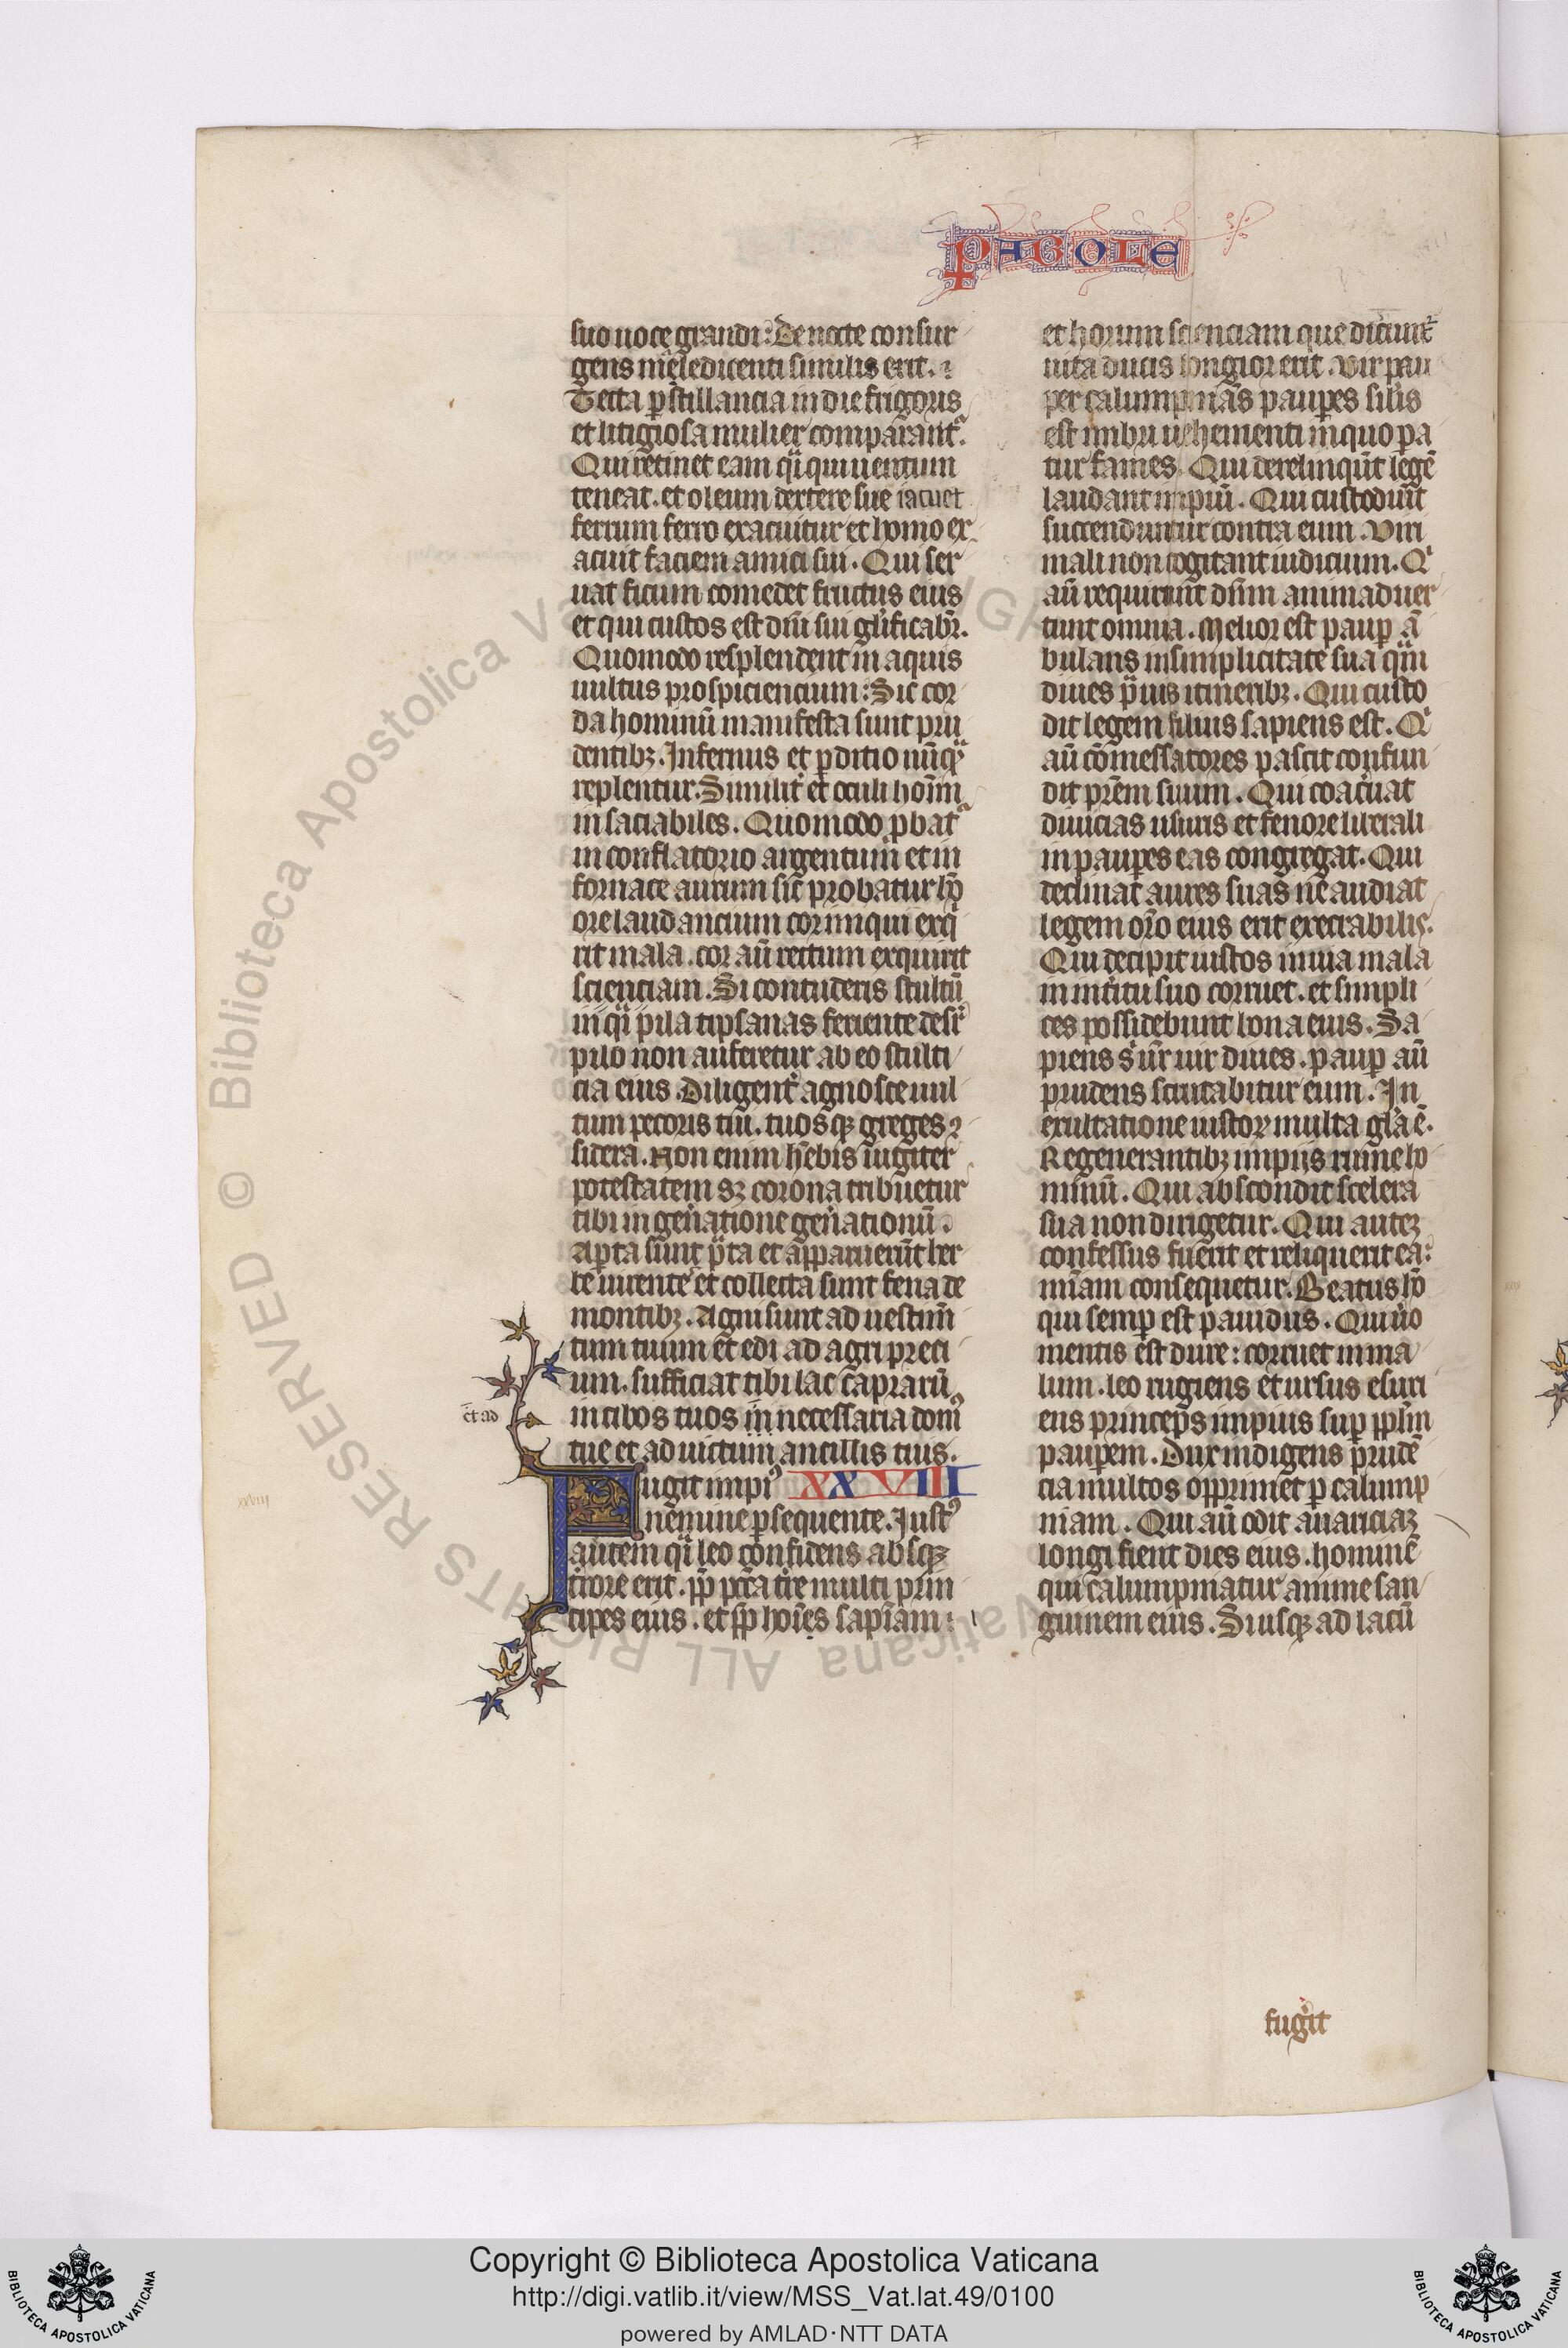 PABOLE
suo uoce grandi: De nocte consur
gens m̄eledicenti similis erit.
Tecta ꝑstillancia in die frigoris
et litigiosa mulier comparantᷣ.
Qui retinet eam qͣi qui uentum
teneat. et oleum dextere sue iacuet
ferrum ferro exacuitur et homo ex
acuit faciem amici sui. Qui ser
uat ficum comedet fructus eius
et qui custos est dn̄i sui gl̓ificabr̄.
Quomodo resplendent in aquis
uultus prospiciencium: Sic cor
da hominū manifesta sunt pru
dentibꝫ. Infernus et ꝑditio nūqͣ
replentur. Similit̓ et oculi hoīm
insaciabiles. Quomodo ꝓbatᷣ
in conflatorio argentum et in
fornace aurum sic̄ probatur hō
ore laudancium cor iniqui exqͥ
rit mala. cor aū rectum exquirit
scienciam. Si contuderis stultū
in qͣi pila tipsanas feriente desͥ
pilo non auferetur ab eo stulti
cia eius. Diligent̓ agnosce uul
tum pecoris tui. tuosqꝫ greges ?
sidera. Non enim h̄ebis iugiter
potestatem sꝫ corona tribuetur
tibi in gen̓atione gen̓ationū.
Aꝑta sunt p̄ta et apparuerūt her
be uirente et collecta sunt fena de
montibꝫ. Agni sunt ad uestim̄
tum tuum et edi ad agri preci
um. sufficiat tibi lac caprarū
et ad
in cibos tuos in necessaria domꝰ
tue et ad uictum ancillis tuis.
Fugit impiꝰ XXVIII
xxviii
nemine ꝑsequente. Iustꝰ
autem qͣi leo confidens absqꝫ
t̓rore erit. ꝓp̄ pcc̄a tr̄e multi prin
cipes eius. et ꝓp̄ hoīes sapīam:
et horum scienciam que dicuntᷣ
uita ducis longior erit. Vir pau
per calumpnians pauꝑes sil̓is
est imbri uehementi in quo pa
tur fames. Qui derelinqūt legē
laudant impiū. Qui custodiūt
succenduntur contra eum. Viri
mali non cogitant iudicium. Qͥ
aū requirunt dn̄m animaduer
tunt omnia. Melior est pauꝑ ā
bulans in simplicitate sua qͣm
diues pͣuis itineribꝫ. Qui custo
dit legem filius sapiens est. Qͥ
aū cōmessatores pascit confun
dit pr̄em suum. Qui coac̓uat
diuicias usuris et fenore liberali
in pauꝑes eas congregat. Qui
declinat aures suas ne audiat
legem or̄o eius erit execrabilis.
Qui decipit iustos in uia mala
in int̓itu suo corruet. et simpli
ces possidebunt bona eius. Sa
piens sͥ ur̄ uir diues. pauꝑ aū
prudens scrutabitur eum. In
exultatione iustoꝝ multa gl̄a ē.
Regnerantibꝫ impiis ruine ho
minū. Qui abscondit scelera
sua non dirigetur. Qui auteꝫ
confessus fuerit et reliquerit ea:
mīam consequetur. Beatus hō
qui semꝑ est pauidus. Qui ůo
mentis est dure: corruet in ma
lum. leo rugiens et ursus esuri
ens princeps impius suꝑ ppl̄m
pauꝑem. Dux indigens prudē
cia multos opprimet ꝑ calump
niam. Qui aū odit auariciaꝫ
longi fient dies eius. hominē
qui calumpniatur anime san
guinem eius. Si usqꝫ ad lacū
fugit
Copyright © Biblioteca Apostolica Vaticana
http://digi.vatlib.it/view/MSS_Vat.lat.49/0100
powered by AMLAD·NTT DATA
© Biblioteca Apostolica Vaticana ALL RIGHTS RESERVED
BIBLIOTECA APOSTOLICA VATICANA
BIBLIOTECA APOSTOLICA VATICANA